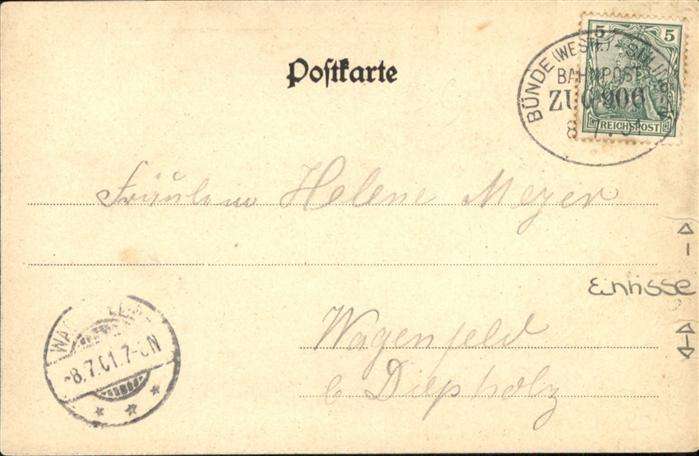 Postkarte
5 5
REICHSPOST
BÜNDE (WESTF.)
BAHNPOST
ZUG 906
8 7
Fräulein Helene Meyer
Einrisse
Wagenfeld
b Diepholz
-8.7.01.7-8N